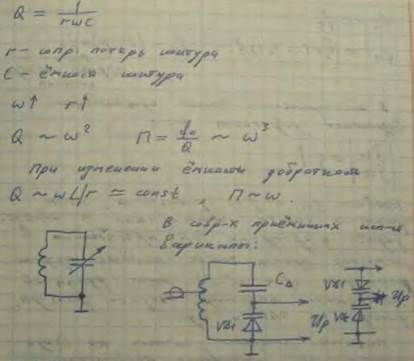 Q = 1/rωC
r - сопр. потерь контура
C - ёмкость контура
ω↑ r↑
Q ~ ω² П = f₀/Q ~ ω³
При изменении ёмкости добротность
Q ~ ωL/r ≃ const, П ~ ω.
В совр-х приёмниках
варикапы:
C_Δ
VD1
Uр
VD1
VD2
Uр